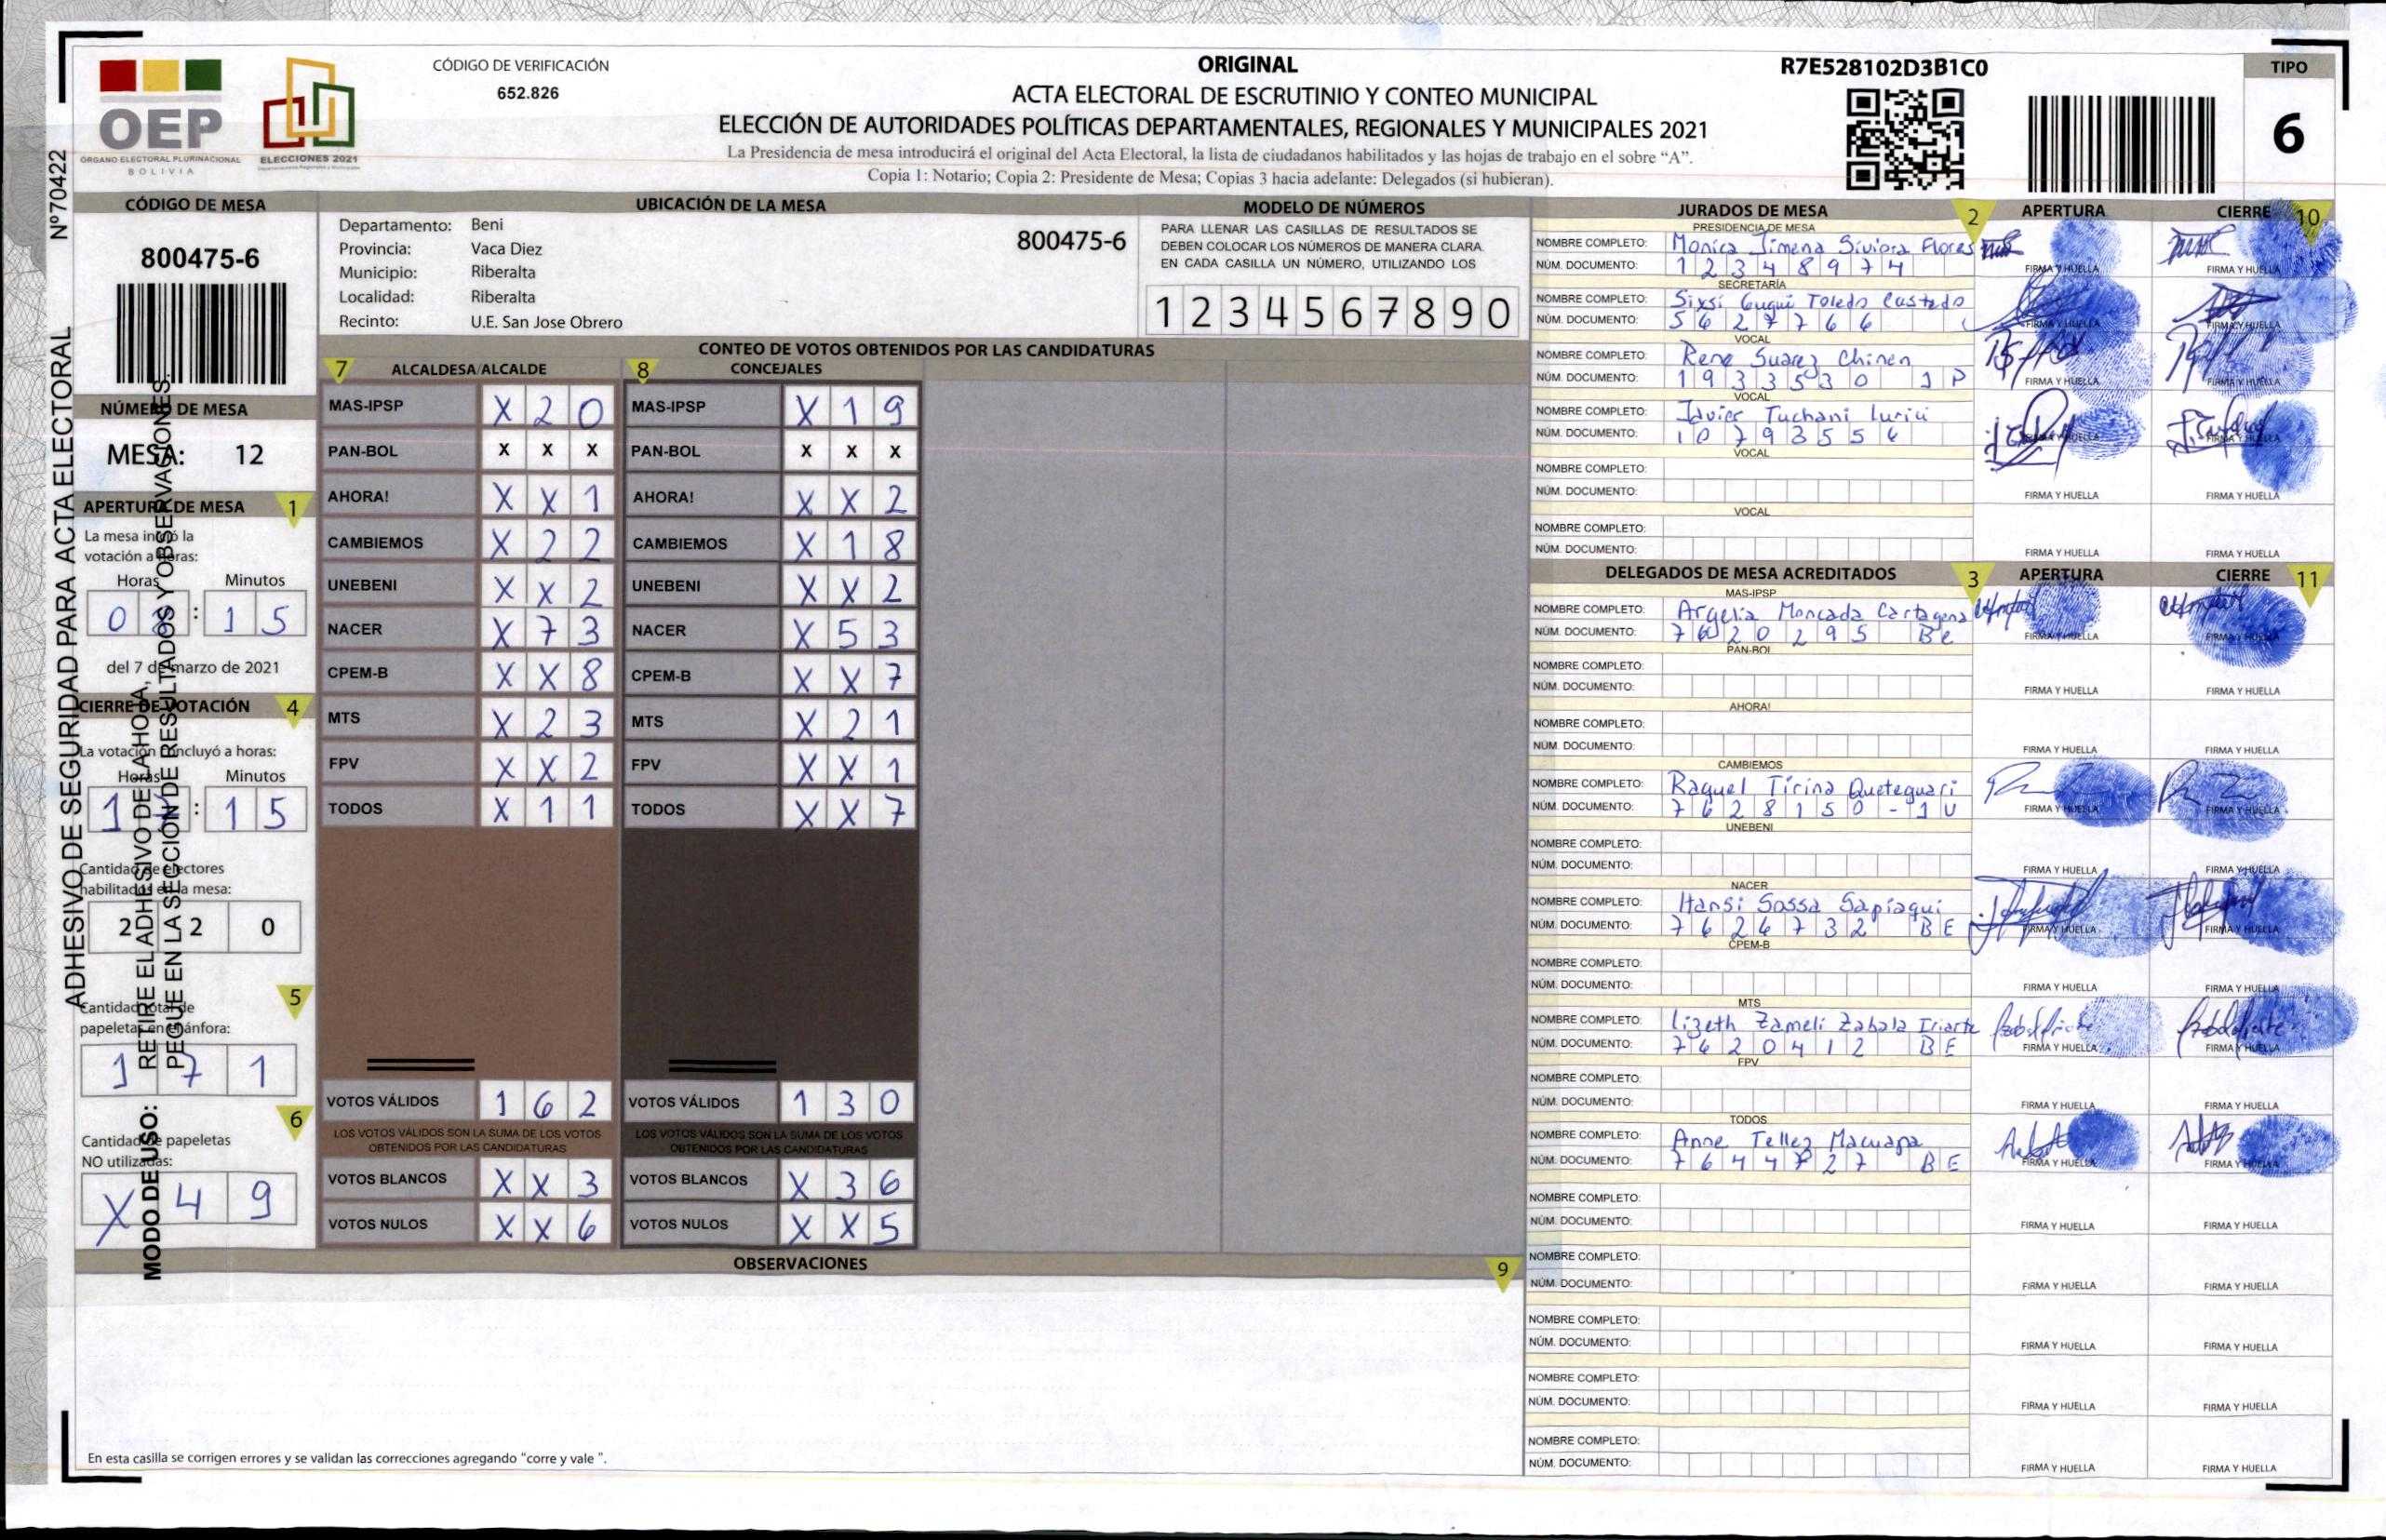 CÓDIGO DE VERIFICACIÓN
652.826
OEP
ÓRGANO ELECTORAL PLURINACIONAL
BOLIVIA
ELECCIONES 2021
ORIGINAL
ACTA ELECTORAL DE ESCRUTINIO Y CONTEO MUNICIPAL
ELECCIÓN DE AUTORIDADES POLÍTICAS DEPARTAMENTALES, REGIONALES Y MUNICIPALES 2021
La Presidencia de mesa introducirá el original del Acta Electoral, la lista de ciudadanos habilitados y las hojas de trabajo en el sobre “A”.
Copia 1: Notario; Copia 2: Presidente de Mesa; Copias 3 hacia adelante: Delegados (si hubieran).
R7E528102D3B1C0
TIPO
6
Nº70422
ADHESIVO DE SEGURIDAD PARA ACTA ELECTORAL
MODO DE USO: RETIRE EL ADHESIVO DE LA HOJA,
PEGUE EN LA SECCIÓN DE RESULTADOS Y OBSERVACIONES.
CÓDIGO DE MESA
800475-6
NÚMERO DE MESA
MESA: 12
APERTURA DE MESA 1
La mesa inició la
votación a horas:
Horas Minutos
: 1 5
del 7 de marzo de 2021
CIERRE DE VOTACIÓN 4
La votación concluyó a horas:
Horas Minutos
: 1 5
Cantidad de electores
habilitados en la mesa:
2 2 0
5
Cantidad total de
papeletas en ánfora:
1 7 1
6
Cantidad de papeletas
NO utilizadas:
X 4 9
UBICACIÓN DE LA MESA
Departamento: Beni
Provincia: Vaca Diez
Municipio: Riberalta
Localidad: Riberalta
Recinto: U.E. San Jose Obrero
800475-6
MODELO DE NÚMEROS
PARA LLENAR LAS CASILLAS DE RESULTADOS SE
DEBEN COLOCAR LOS NÚMEROS DE MANERA CLARA.
EN CADA CASILLA UN NÚMERO, UTILIZANDO LOS
1 2 3 4 5 6 7 8 9 0
CONTEO DE VOTOS OBTENIDOS POR LAS CANDIDATURAS
7 ALCALDESA/ALCALDE 8 CONCEJALES
MAS-IPSP X 2 0 MAS-IPSP X 1 9
PAN-BOL X X X PAN-BOL X X X
AHORA! X X 1 AHORA! X X 2
CAMBIEMOS X 2 2 CAMBIEMOS X 1 8
UNEBENI X X 2 UNEBENI X X 2
NACER X 7 3 NACER X 5 3
CPEM-B X X 8 CPEM-B X X 7
MTS X 2 3 MTS X 2 1
FPV X X 2 FPV X X 1
TODOS X 1 1 TODOS X X 7
VOTOS VÁLIDOS 1 6 2 VOTOS VÁLIDOS 1 3 0
LOS VOTOS VÁLIDOS SON LA SUMA DE LOS VOTOS LOS VOTOS VÁLIDOS SON LA SUMA DE LOS VOTOS
OBTENIDOS POR LAS CANDIDATURAS OBTENIDOS POR LAS CANDIDATURAS
VOTOS BLANCOS X X 3 VOTOS BLANCOS X 3 6
VOTOS NULOS X X 6 VOTOS NULOS X X 5
OBSERVACIONES 9
En esta casilla se corrigen errores y se validan las correcciones agregando “corre y vale ”.
JURADOS DE MESA 2 APERTURA CIERRE 10
PRESIDENCIA DE MESA
NOMBRE COMPLETO: Monica Jimena Siviora Flores
NÚM. DOCUMENTO: 1 2 3 4 8 9 7 4 FIRMA Y HUELLA FIRMA Y HUELLA
SECRETARÍA
NOMBRE COMPLETO: Toledo
NÚM. DOCUMENTO: 5 6 2 7 7 6 6 FIRMA Y HUELLA FIRMA Y HUELLA
VOCAL
NOMBRE COMPLETO: Rene Suarez Chinen
NÚM. DOCUMENTO: 1 9 3 3 5 3 0 1 P FIRMA Y HUELLA FIRMA Y HUELLA
VOCAL
NOMBRE COMPLETO: Javier Tuchani
NÚM. DOCUMENTO: 1 0 7 9 3 5 5 6
VOCAL
NOMBRE COMPLETO:
NÚM. DOCUMENTO: FIRMA Y HUELLA FIRMA Y HUELLA
VOCAL
NOMBRE COMPLETO:
NÚM. DOCUMENTO: FIRMA Y HUELLA FIRMA Y HUELLA
DELEGADOS DE MESA ACREDITADOS 3 APERTURA CIERRE 11
MAS-IPSP
NOMBRE COMPLETO: Argelia Moncada Cartagena
NÚM. DOCUMENTO: 7 6 2 0 2 9 5 Be FIRMA Y HUELLA FIRMA Y HUELLA
PAN-BOL
NOMBRE COMPLETO:
NÚM. DOCUMENTO: FIRMA Y HUELLA FIRMA Y HUELLA
AHORA!
NOMBRE COMPLETO:
NÚM. DOCUMENTO: FIRMA Y HUELLA FIRMA Y HUELLA
CAMBIEMOS
NOMBRE COMPLETO: Raquel Tirina Queteguari
NÚM. DOCUMENTO: 7 6 2 8 1 5 0 - 1 U FIRMA Y HUELLA FIRMA Y HUELLA
UNEBENI
NOMBRE COMPLETO:
NÚM. DOCUMENTO: FIRMA Y HUELLA FIRMA Y HUELLA
NACER
NOMBRE COMPLETO: Hansi Sossa Sapiaqui
NÚM. DOCUMENTO: 7 6 2 6 7 3 2 B E FIRMA Y HUELLA FIRMA Y HUELLA
CPEM-B
NOMBRE COMPLETO:
NÚM. DOCUMENTO: FIRMA Y HUELLA FIRMA Y HUELLA
MTS
NOMBRE COMPLETO: Lizeth Zameli Zabala Iriarte
NÚM. DOCUMENTO: 7 6 2 0 4 1 2 B E FIRMA Y HUELLA FIRMA Y HUELLA
FPV
NOMBRE COMPLETO:
NÚM. DOCUMENTO: FIRMA Y HUELLA FIRMA Y HUELLA
TODOS
NOMBRE COMPLETO: Anne Tellez Macuapa
NÚM. DOCUMENTO: 7 6 4 4 7 2 7 B E FIRMA Y HUELLA FIRMA Y HUELLA
NOMBRE COMPLETO:
NÚM. DOCUMENTO: FIRMA Y HUELLA FIRMA Y HUELLA
NOMBRE COMPLETO:
NÚM. DOCUMENTO: FIRMA Y HUELLA FIRMA Y HUELLA
NOMBRE COMPLETO:
NÚM. DOCUMENTO: FIRMA Y HUELLA FIRMA Y HUELLA
NOMBRE COMPLETO:
NÚM. DOCUMENTO: FIRMA Y HUELLA FIRMA Y HUELLA
NOMBRE COMPLETO:
NÚM. DOCUMENTO: FIRMA Y HUELLA FIRMA Y HUELLA